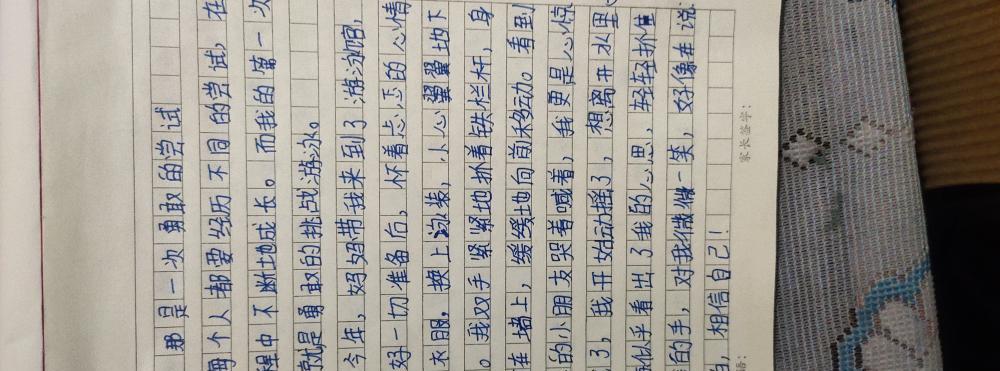 那是一次勇敢的尝试
每个人都要经历不同的尝试，在
程中不断地成长。而我的第一次
就是勇敢的挑战游泳。
今年，妈妈带我来到了游泳馆，
好一切准备后，怀着忐忑的心情
衣服，换上泳装，小心翼翼地下
。我双手紧紧地抓着铁栏杆，身
在墙上，缓缓地向前移动。看到
的小朋友哭着喊着，我更是心惊
了，我开始动摇了，想离开水里
似乎看出了我的心思，轻轻抓住
的手，对我微微一笑，好像在说
，相信自己！
家长签字：